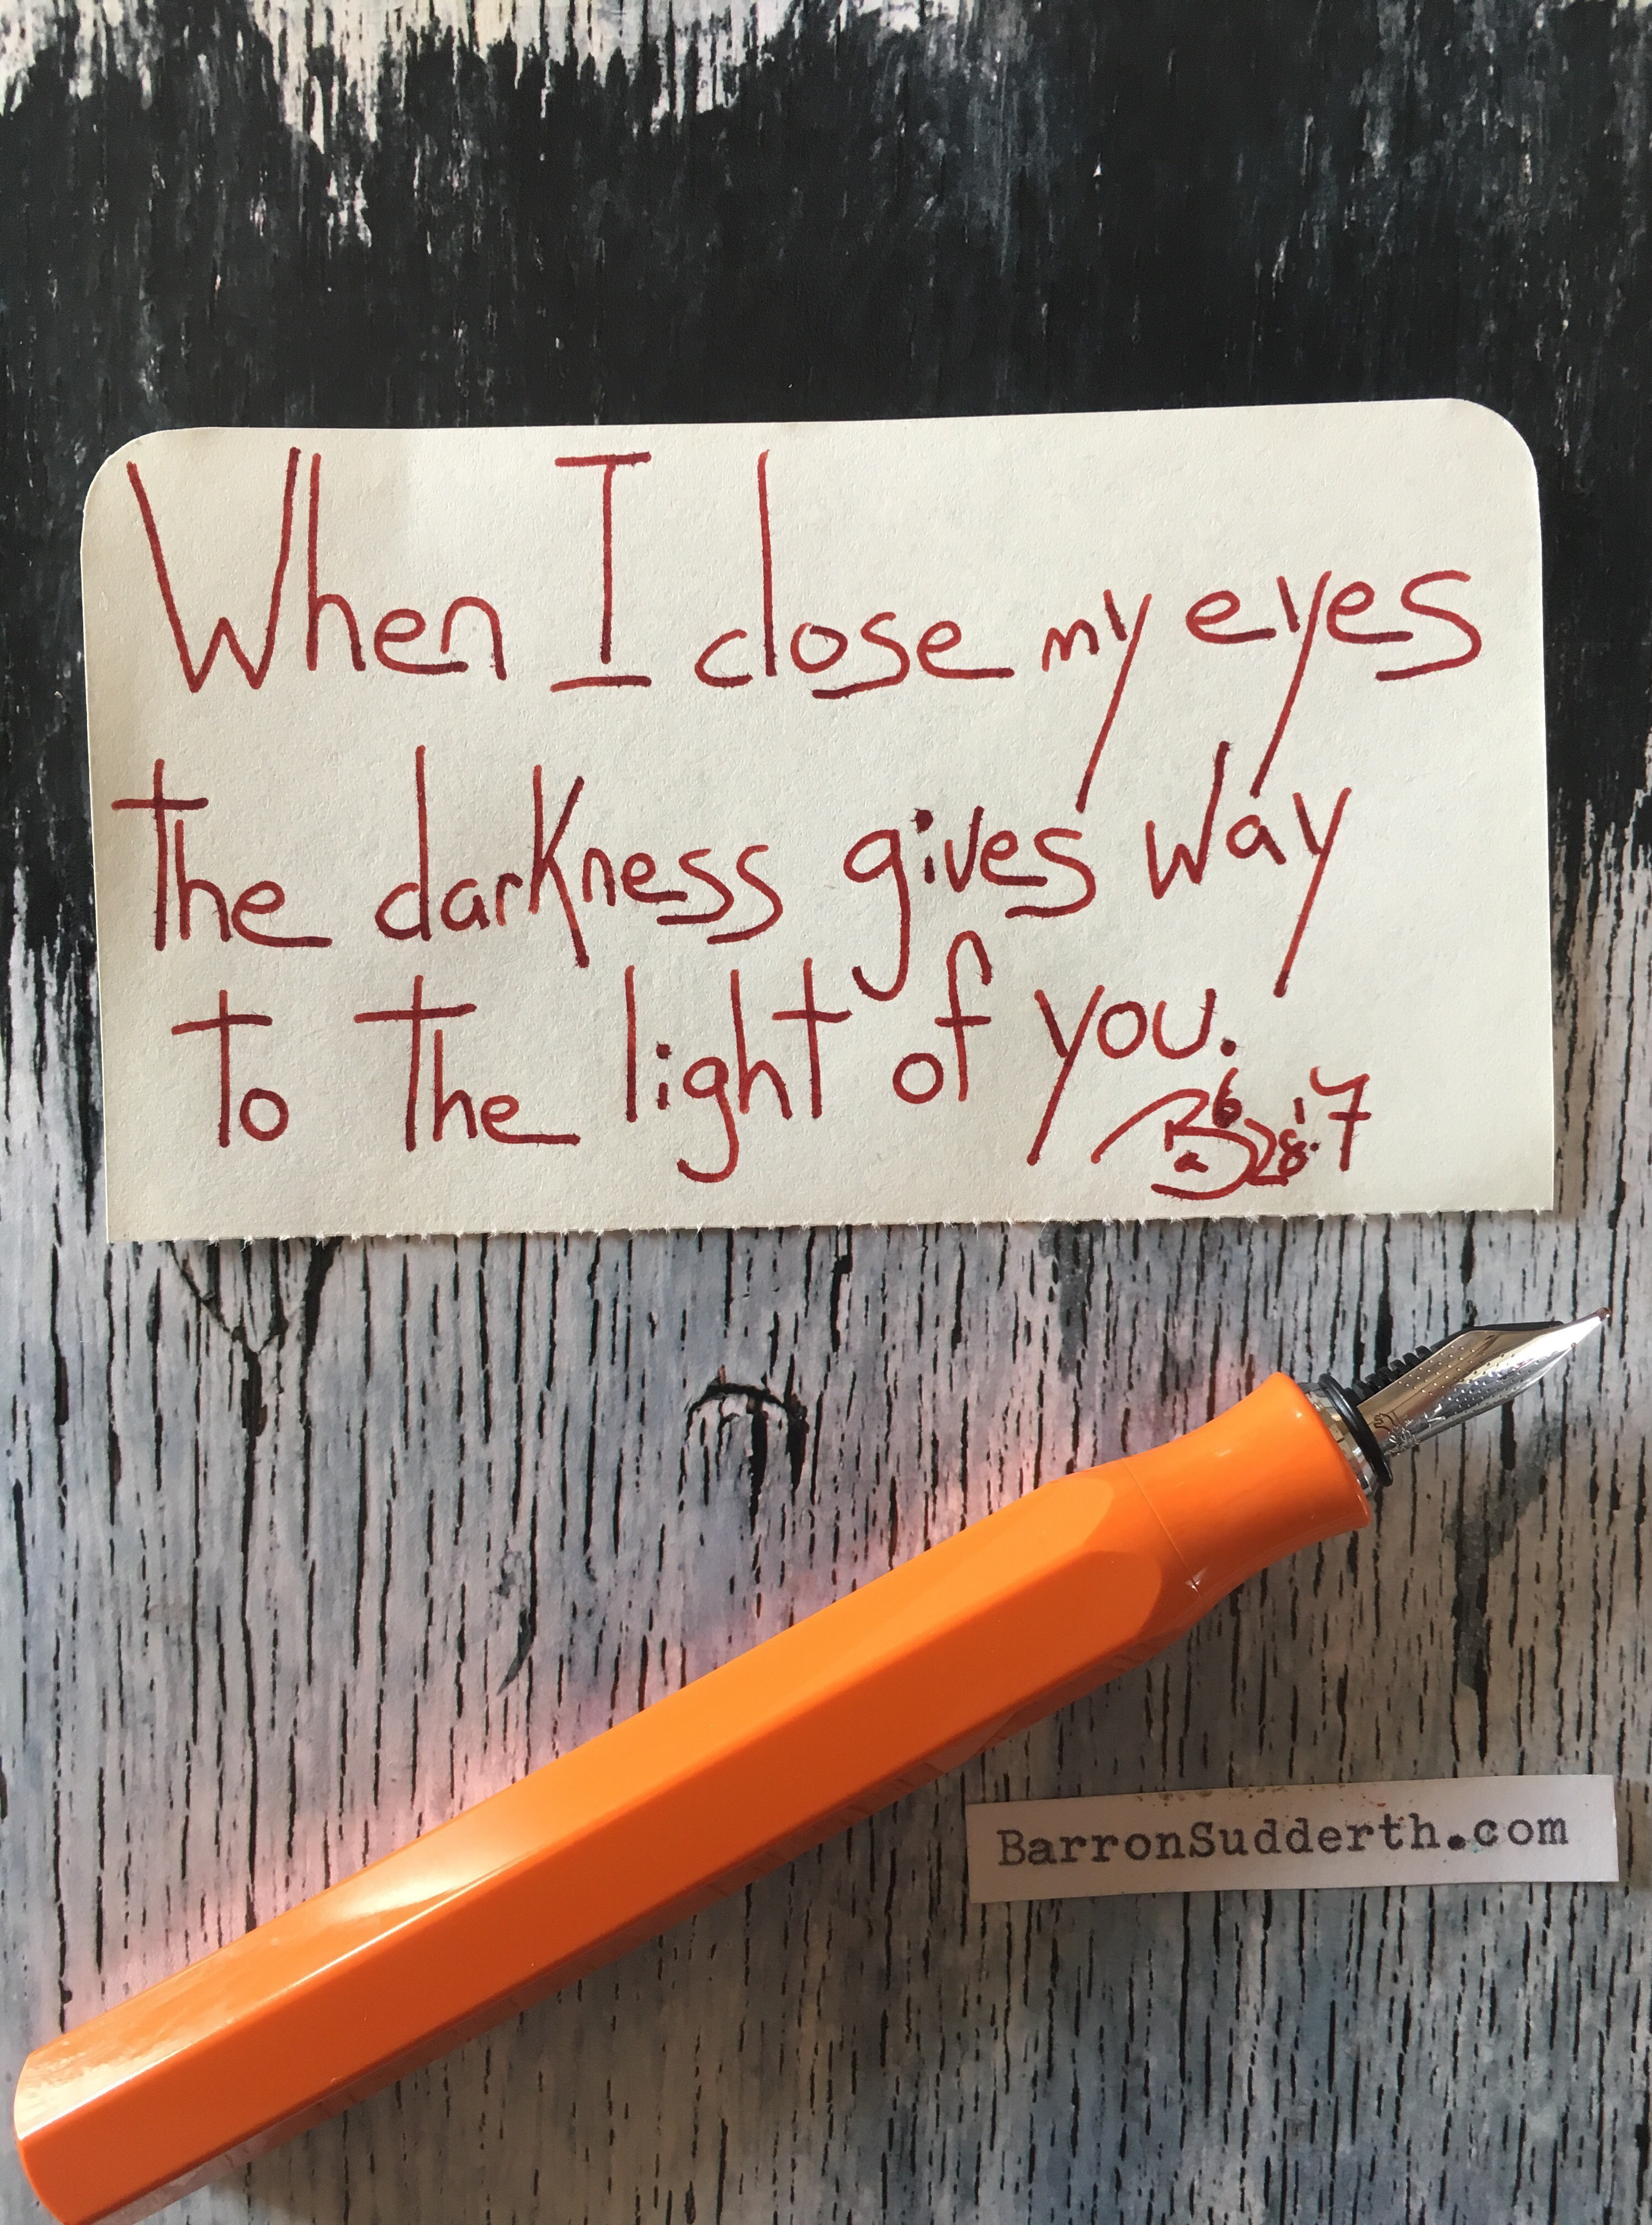 When I close my eyes
the darkness gives way
to the light of you.
BarronSudderth.com